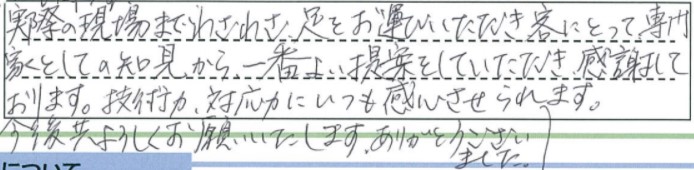 実際の現場までわざわざ、足をお運びいただき客にとって、専門
家としての知見から、一番よい提案をしていただき、感謝して
おります。技術力、対応力にいつも感心させられます。
今後共よろしくお願いいたします。ありがとうござい
ました。
について